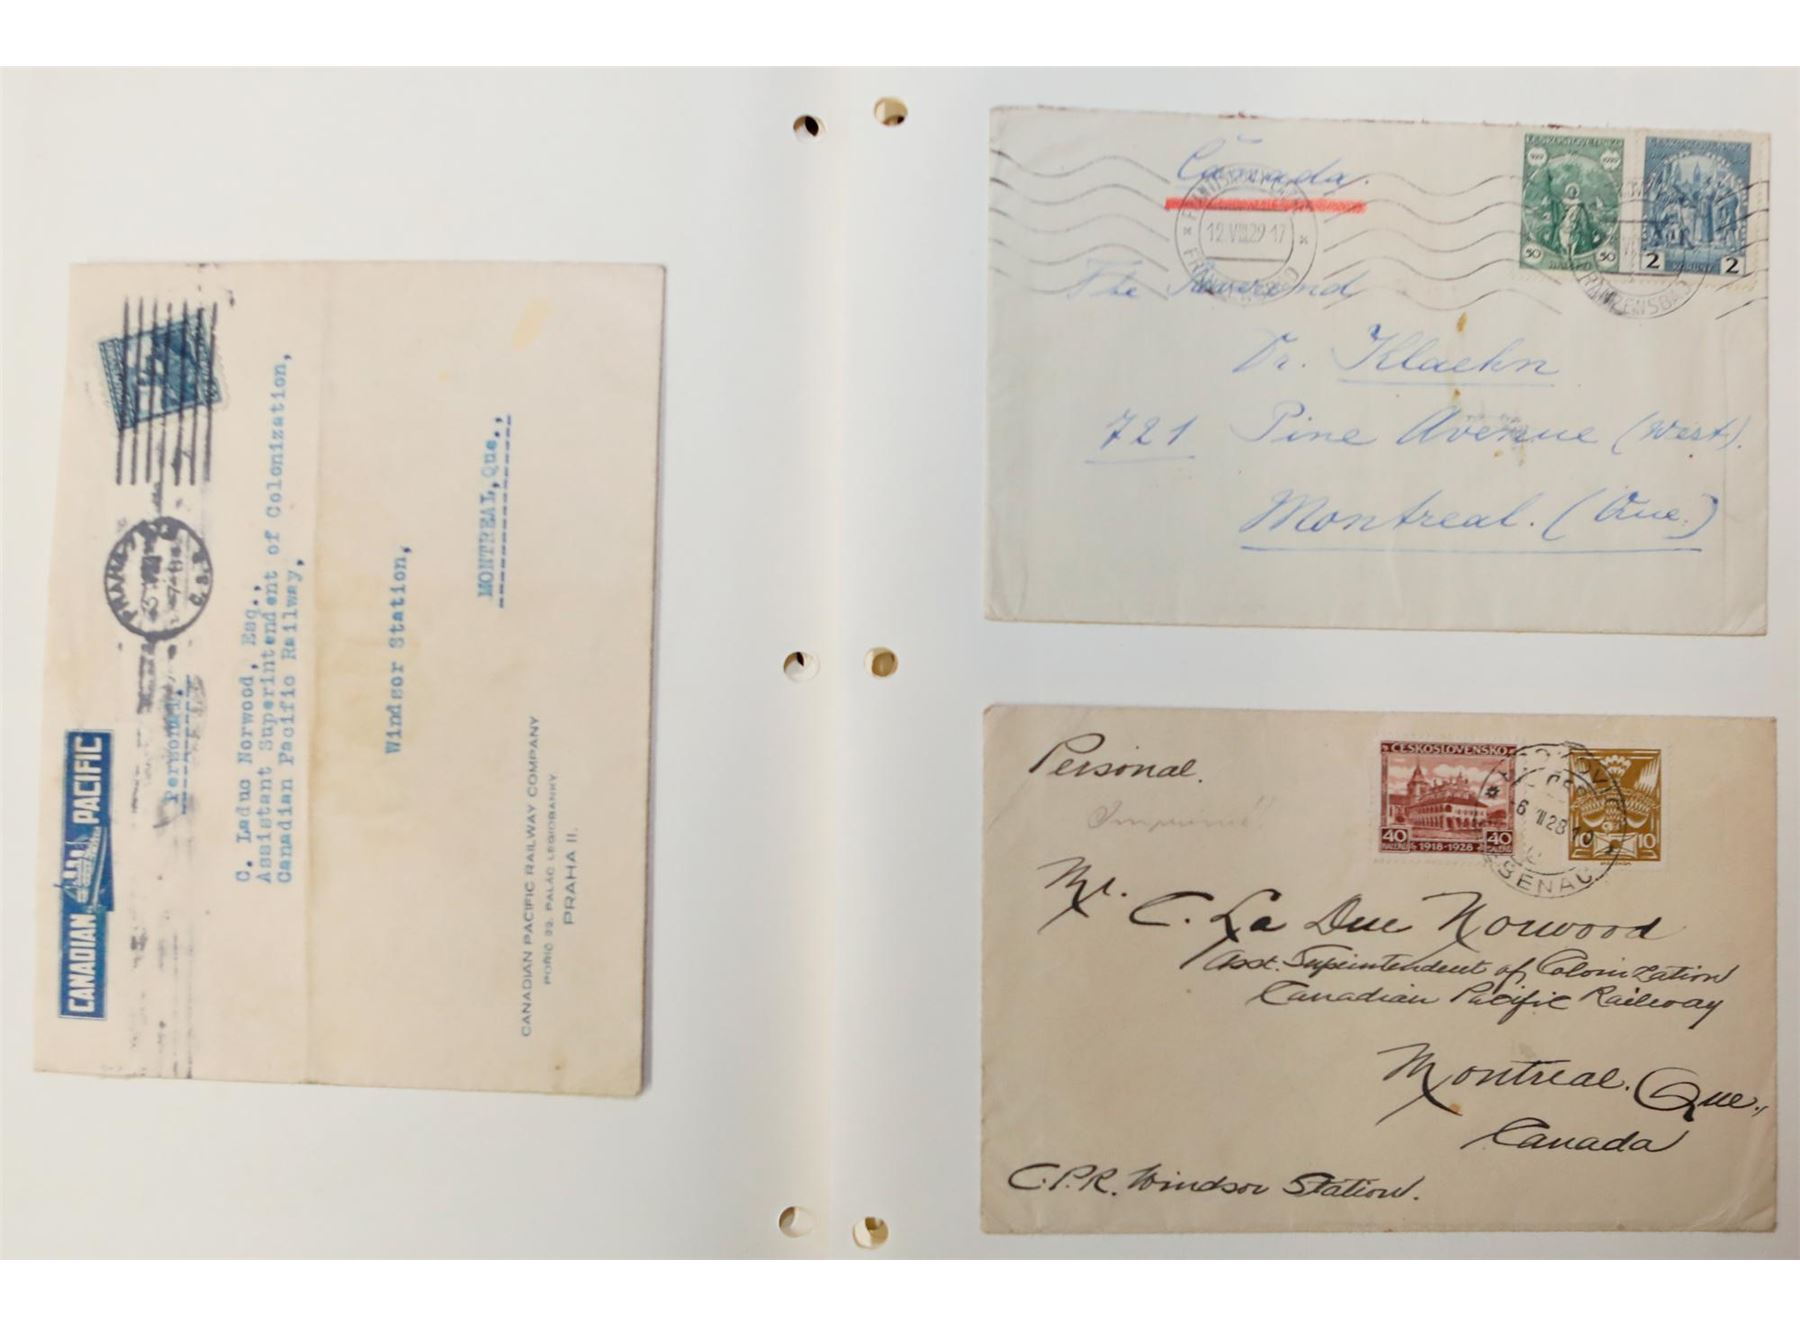 CANADIAN PACIFIC
PRAHA
Č.S.R.
Personal.
C. Laduc Norwood, Esq.,
Assistant Superintendent of Colonization,
Canadian Pacific Railway,
Windsor Station,
MONTREAL, Que.,
CANADIAN PACIFIC RAILWAY COMPANY
POŘIČ 22. PALÁC LEGIOBANKY
PRAHA II.
Canada.
12.VIII.29-17
ČESKOSLOVENSKO
50 50
2 2
FRANZENSBAD
The Reverend
Dr. Klaehn
721 Pine Avenue (West).
Montreal. (Que.)
Personal.
ČESKOSLOVENSKO
40 40
HALÉŘŮ 1918-1928 HALÉŘŮ
10 10
Mr. C. La Due Norwood
Asst. Superintendent of Colonization
Canadian Pacific Railway
Montreal. Que.,
Canada
C.P.R. Windsor Station.